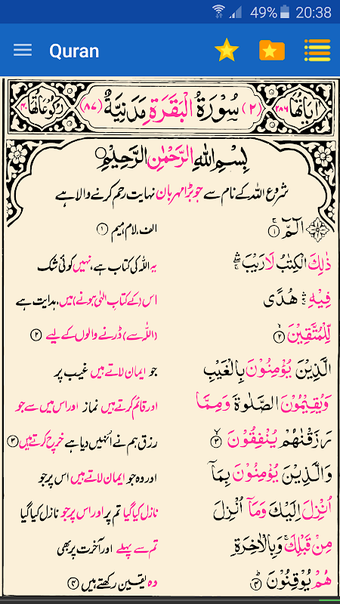 49% 20:38
Quran
اٰيَاتُهَا ٢٨٦ (٢) سُوْرَةُ الْبَقَرَةِ مَدَنِيَّةٌ (٨٧) رُكُوْعَاتُهَا ٤٠
بِسْمِ اللّٰهِ الرَّحْمٰنِ الرَّحِيْمِ
شروع اللہ کے نام سے جو بڑا مہربان نہایت رحم کرنے والا ہے
الٓمّٓ ۚ ﴿١﴾ الف، لام، میم ①
ذٰلِكَ الْكِتٰبُ لَا رَيْبَ ۛ یہ اللہ کی کتاب ہے، نہیں کوئی شک
فِيْهِ ۛ هُدًى اس (کے کتابِ الٰہی ہونے) میں، ہدایت ہے
لِّلْمُتَّقِيْنَ ۙ ﴿٢﴾ (اللہ سے) ڈرنے والوں کے لیے ②
الَّذِيْنَ يُؤْمِنُوْنَ بِالْغَيْبِ جو ایمان لاتے ہیں غیب پر
وَيُقِيْمُوْنَ الصَّلٰوةَ وَمِمَّا اور قائم کرتے ہیں نماز اور اس میں سے جو
رَزَقْنٰهُمْ يُنْفِقُوْنَ ۙ ﴿٣﴾ رزق ہم نے انہیں دیا ہے خرچ کرتے ہیں ③
وَالَّذِيْنَ يُؤْمِنُوْنَ بِمَآ اور وہ جو ایمان لاتے ہیں اس پر جو
اُنْزِلَ اِلَيْكَ وَمَآ اُنْزِلَ نازل کیا گیا تم پر اور اس پر جو نازل کیا گیا
مِنْ قَبْلِكَ ۚ وَبِالْاٰخِرَةِ تم سے پہلے اور آخرت پر بھی
هُمْ يُوْقِنُوْنَ ؕ ﴿٤﴾ وہ یقین رکھتے ہیں ④